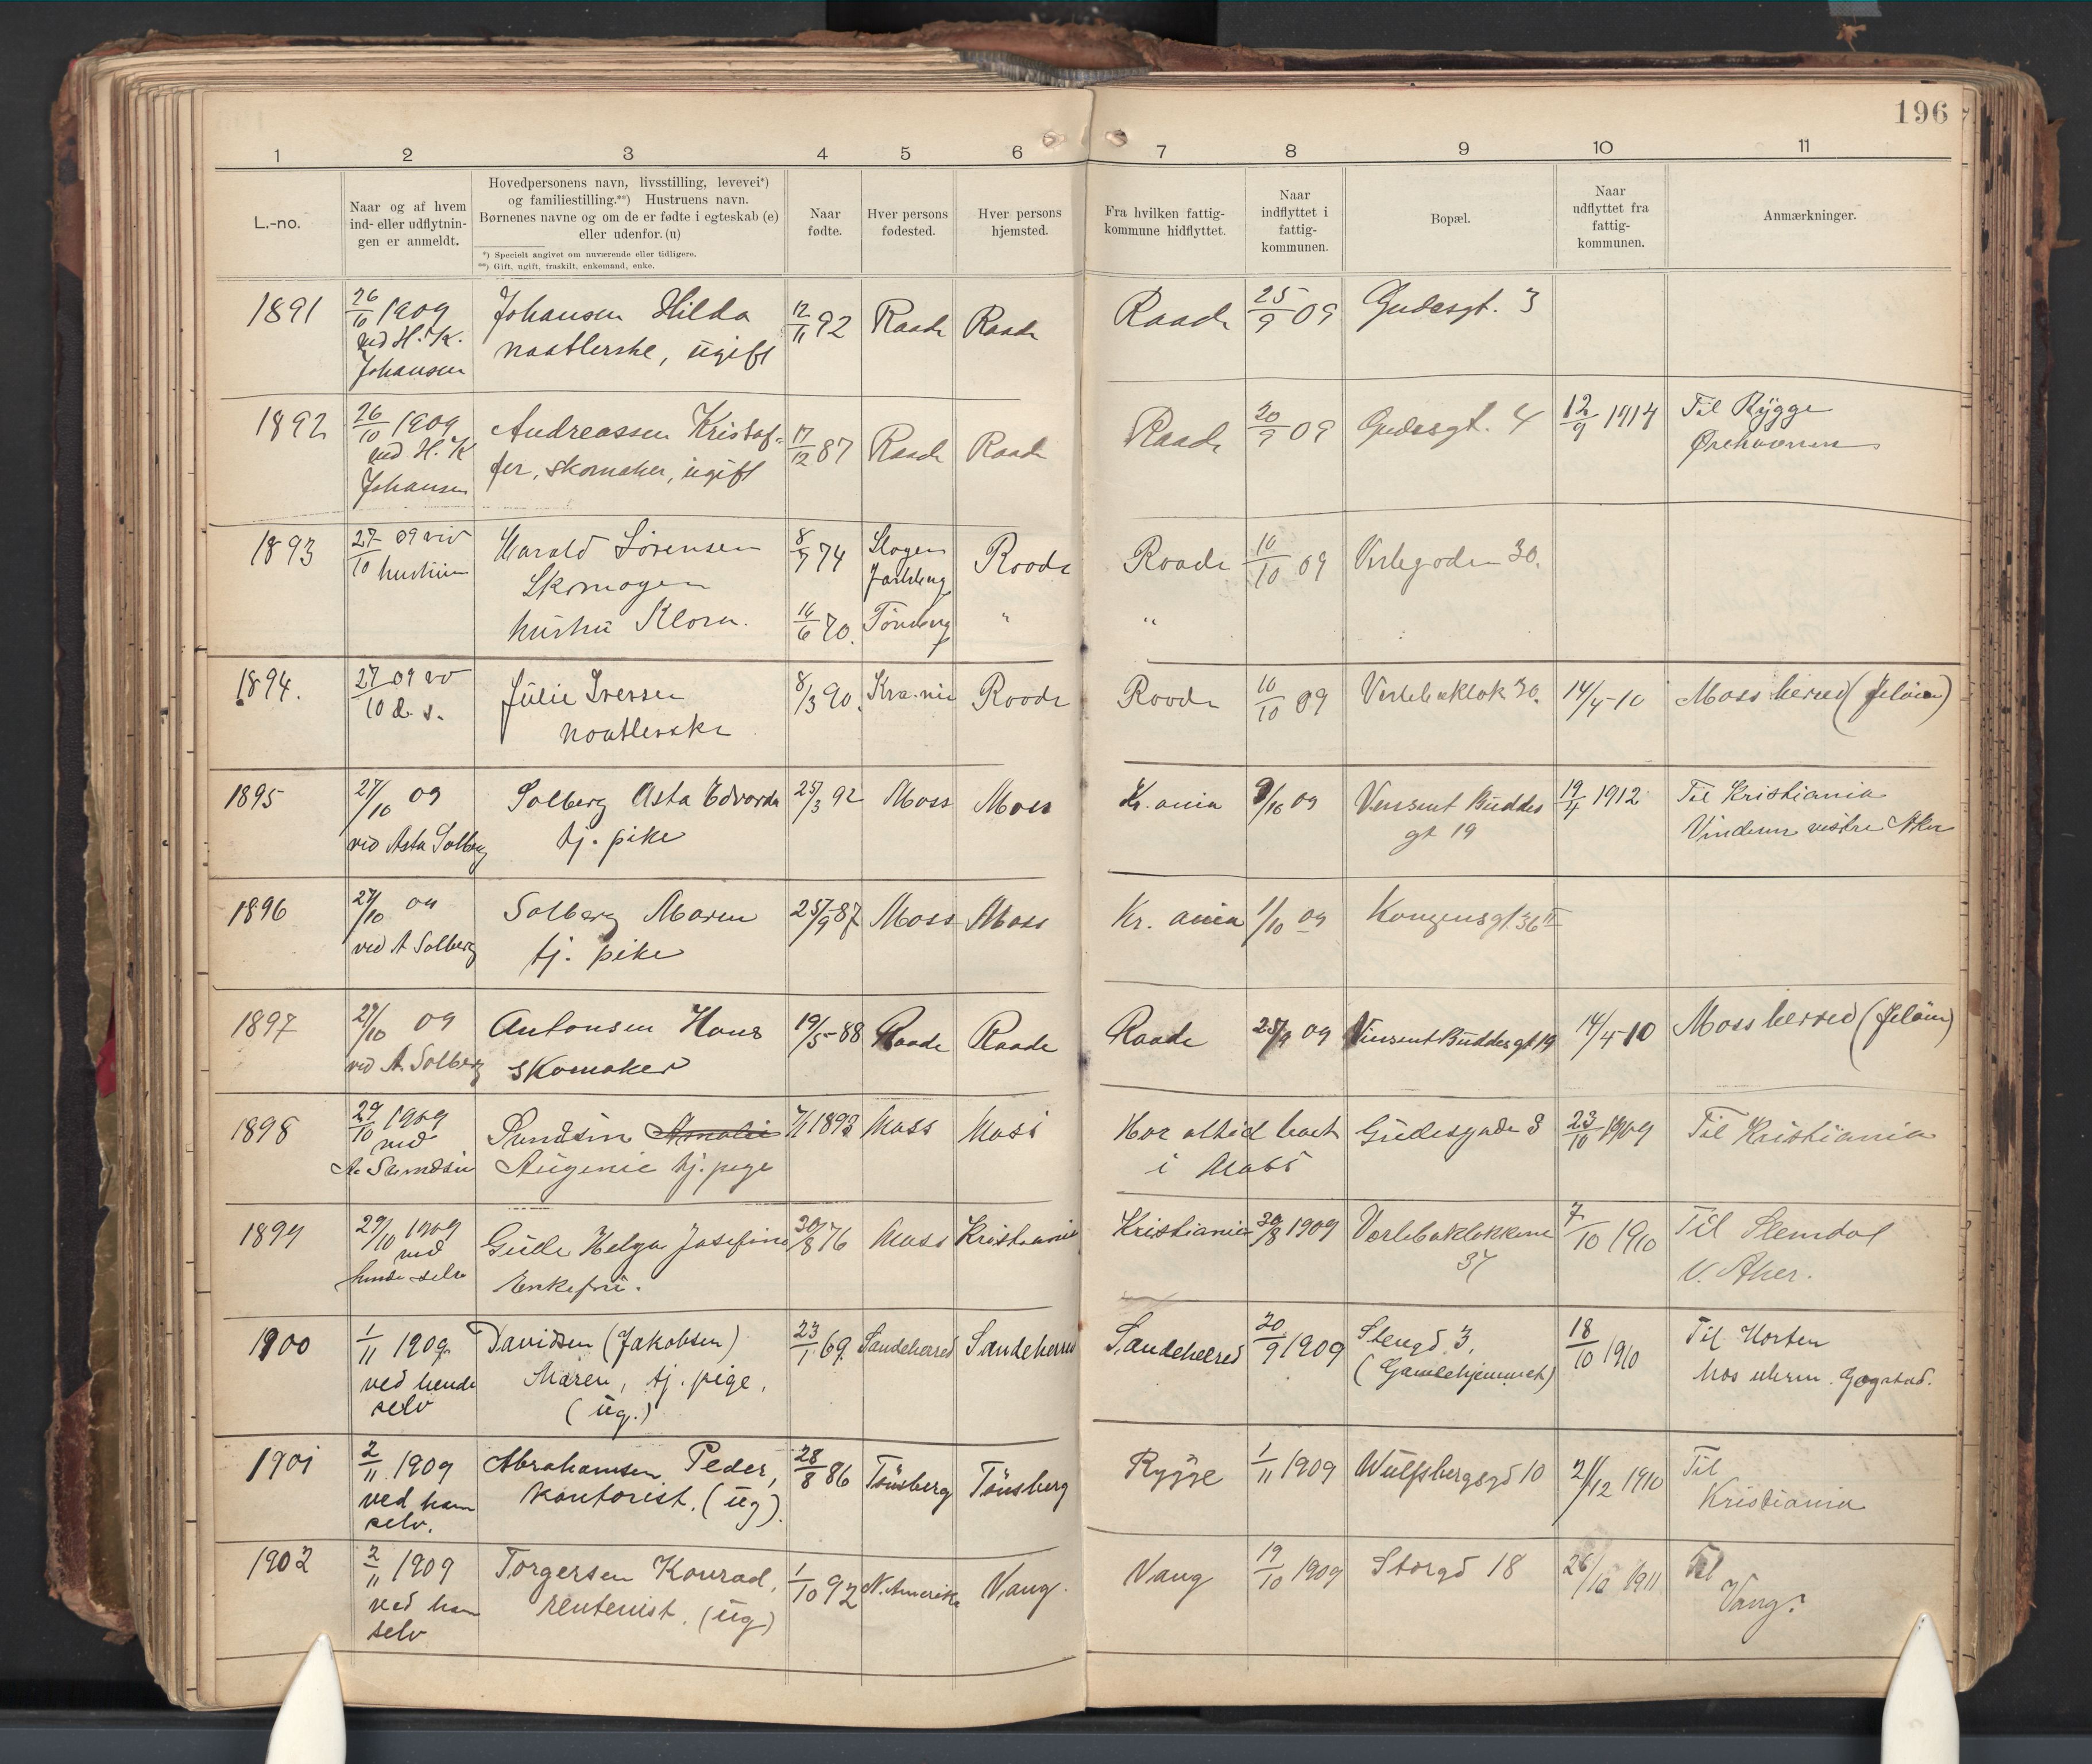 196
1 2 3 4 5 6 7 8 9 10 11
L.-no.
Naar og af hvem
ind- eller udflytnin-
gen er anmeldt.
Hovedpersonens navn, livsstilling, levevei*)
og familiestilling.**) Hustruens navn.
Børnenes navne og om de er fødte i egteskab (e)
eller udenfor. (u)
*) Specielt angivet om nuværende eller tidligere.
**) Gift, ugift, fraskilt, enkemand, enke.
Naar
fødte.
Hver persons
fødested.
Hver persons
hjemsted.
Fra hvilken fattig-
kommune hidflyttet.
Naar
indflyttet i
fattig-
kommunen.
Bopæl.
Naar
udflyttet fra
fattig-
kommunen.
Anmærkninger.
1891
26/10 1909
ved H. K.
Johansen
Johansen Hilda
naatlerske, ugift
12/11 92
Raade
Raade
Raade
25/9 09
Gudesgt. 3
1892
26/10 1909
ved H. K
Johansen
Andreassen Kristof-
fer, skomaker, ugift
17/12 87
Raade
Raade
Raade
20/9 09
Gudesgt. 4
12/9 1914
Til Rygge
1893
27/10 09 ved
hustruen
Harald Sörensen
Skomager
hustru Klara.
8/7 74
Slagen
Jarlsberg
16/6 70.
Tönsberg
Raade
"
Raade
"
10/10 09
30.
1894.
27/10 09 ved
d. s.
Julie Iversen
naatlerske
8/3 90.
Kra.nia
Raade
Raade
10/10 09
Verlebaklok 30.
14/4-10
Moss herred (Jelöen)
1895
27/10 09
ved Asta Solberg
Solberg Asta Edvarda
tj. pike
25/3 92
Moss
Moss
Kr. ania
9/10 09
Vensent Buddes
gt 19
19/4 1912
Til Kristiania
Vinderen vestre Aker
1896
27/10 09
ved A Solberg
Solberg Maren
tj. pike
25/9 87
Moss
Moss
Kr. ania
1/10 09
Kongensgt. 36 II
1897
27/10 09
ved A. Solberg
Antonsen Hans
skomaker
19/5-88
Raade
Raade
Raade
25/9 09
Vinsent Buddes gt 19
14/4-10
Moss herred (Jelöen)
1898
29/10 1909
ved
A. Sundsin
Sundsin Amalie
Augenie tj. pige
7/1 1893
Moss
Moss
Har altid boet
i Moss
Gudesgade 3
23/10 1909
Til Kristiania
1899
29/10 1909
ved
hende selv
Gulle Helga Josefine
Enkefru.
30/8 76
Moss
Kristiania
Kristiania
30/8 1909
Verlebaklokkene
37
7/10 1910
Til Slemdal
V. Aker.
1900
1/11 1909
ved hende
selv
Davidsen (Jakobsen)
Maren, tj. pige,
(ug.)
23/1 69.
Sandeherred
Sandeherred
Sandeherred
20/9 1909
Stengd 3,
(Gamlehjemmet)
18/10 1910
Til Horten
hos urm. Gogstad.
1901
2/11 1909
ved ham
selv.
Abrahamsen Peder,
kontorist. (ug).
28/8 86
Tönsberg
Tönsberg
Rygge
1/11 1909
Wulfsbergsgd 10
1910
Til
Kristiania
1902
2/11 1909
ved ham
selv
Torgersen Konrad,
rentenist. (ug)
1/10 92
N. Amerika
Vang.
Vang
19/10 1909
Storgd 18
26/10 1911
Til
Vang.